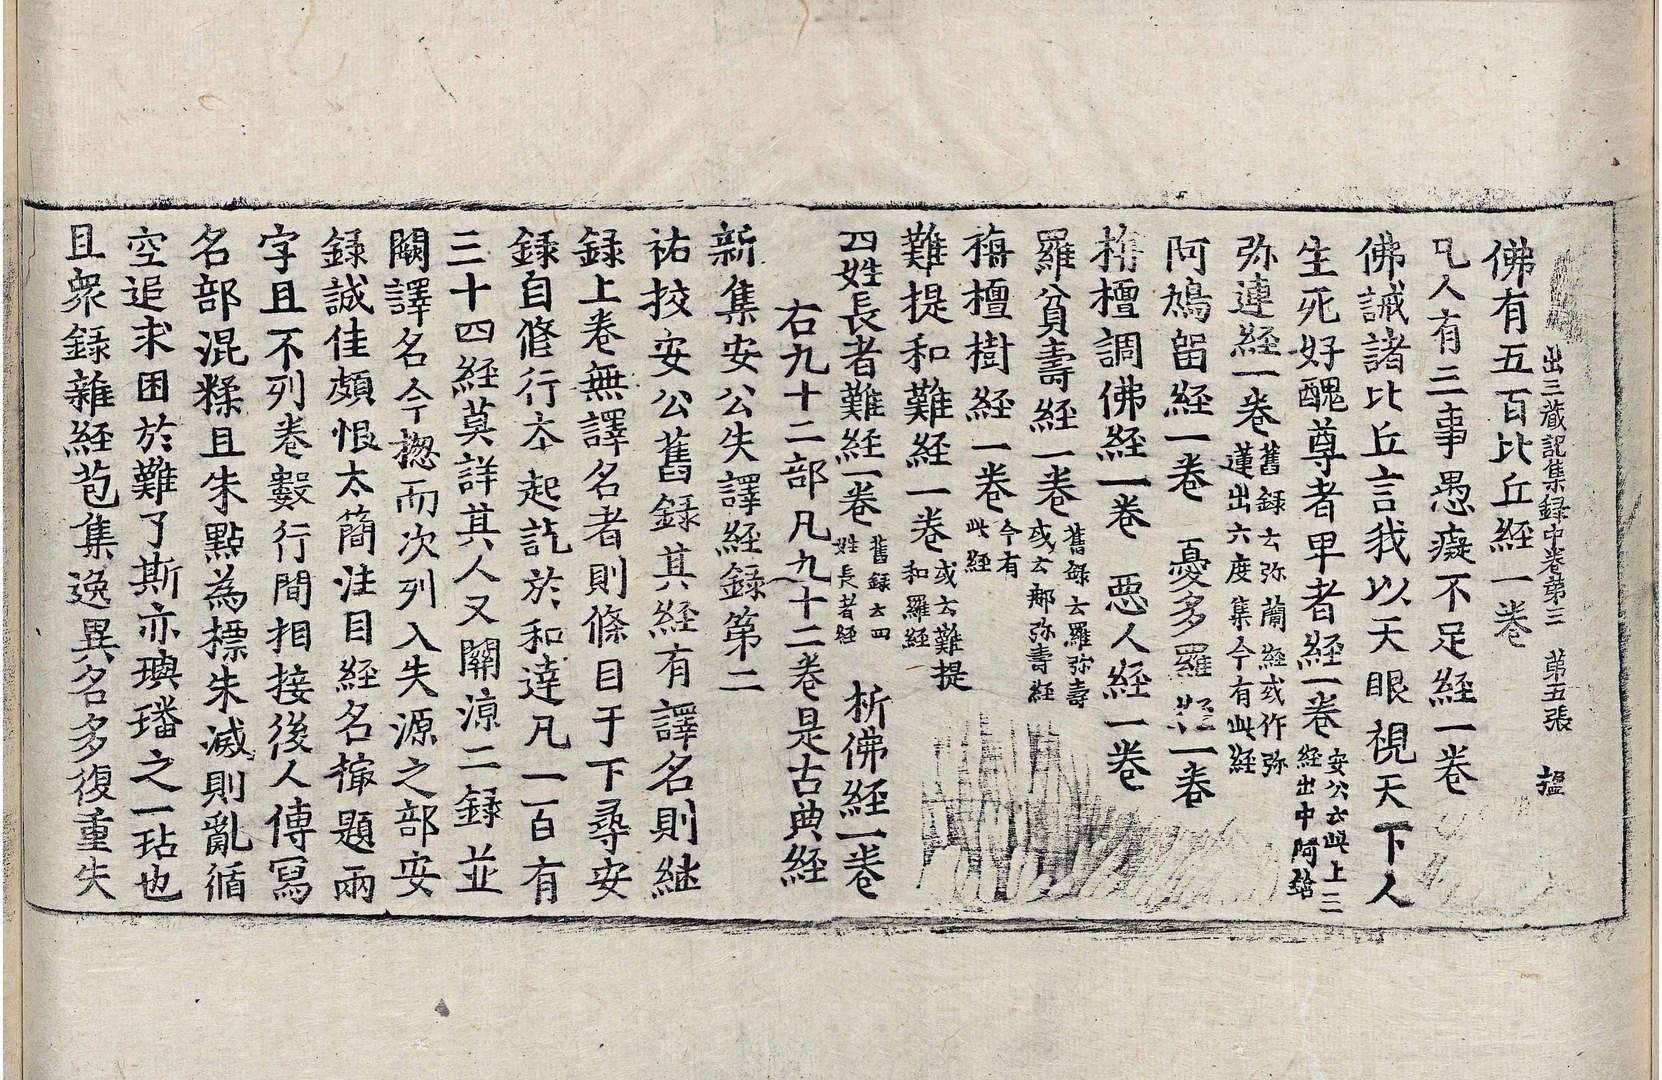 出三藏記集録中卷第三　第五張　摳
佛有五百比丘經一卷
凡人有三事愚癡不足經一卷
佛誡諸比丘言我以天眼視天下人
生死好醜尊者卑者經一卷 安公云與上三
經出中阿鋡
弥連經一卷 舊録云弥蘭經或作弥
蓮出六度集今有此經
阿鳩留經一卷　憂多羅經一卷
栴檀調佛經一卷　惡人經一卷
羅貧壽經一卷 舊録云羅弥壽
或云那弥壽經
栴檀樹經一卷 今有
此經
難提和難經一卷 或云難提
和羅經
四姓長者難經一卷 舊録云四
姓長者經　析佛經一卷
右九十二部凡九十二卷是古典經
新集安公失譯經録第二
祐挍安公舊録其經有譯名則継
録上卷無譯名者則條目于下尋安
録自修行夲起訖於和達凡一百有
三十四經莫詳其人又關涼二録並
闕譯名今揔而次列入失源之部安
録誠佳頗恨太簡注目經名撮題兩
字且不列卷數行間相接後人傳冩
名部混糅且朱點為標朱滅則亂循
空追求困於難了斯亦璵璠之一玷也
且衆録雜經苞集逸異名多復重失